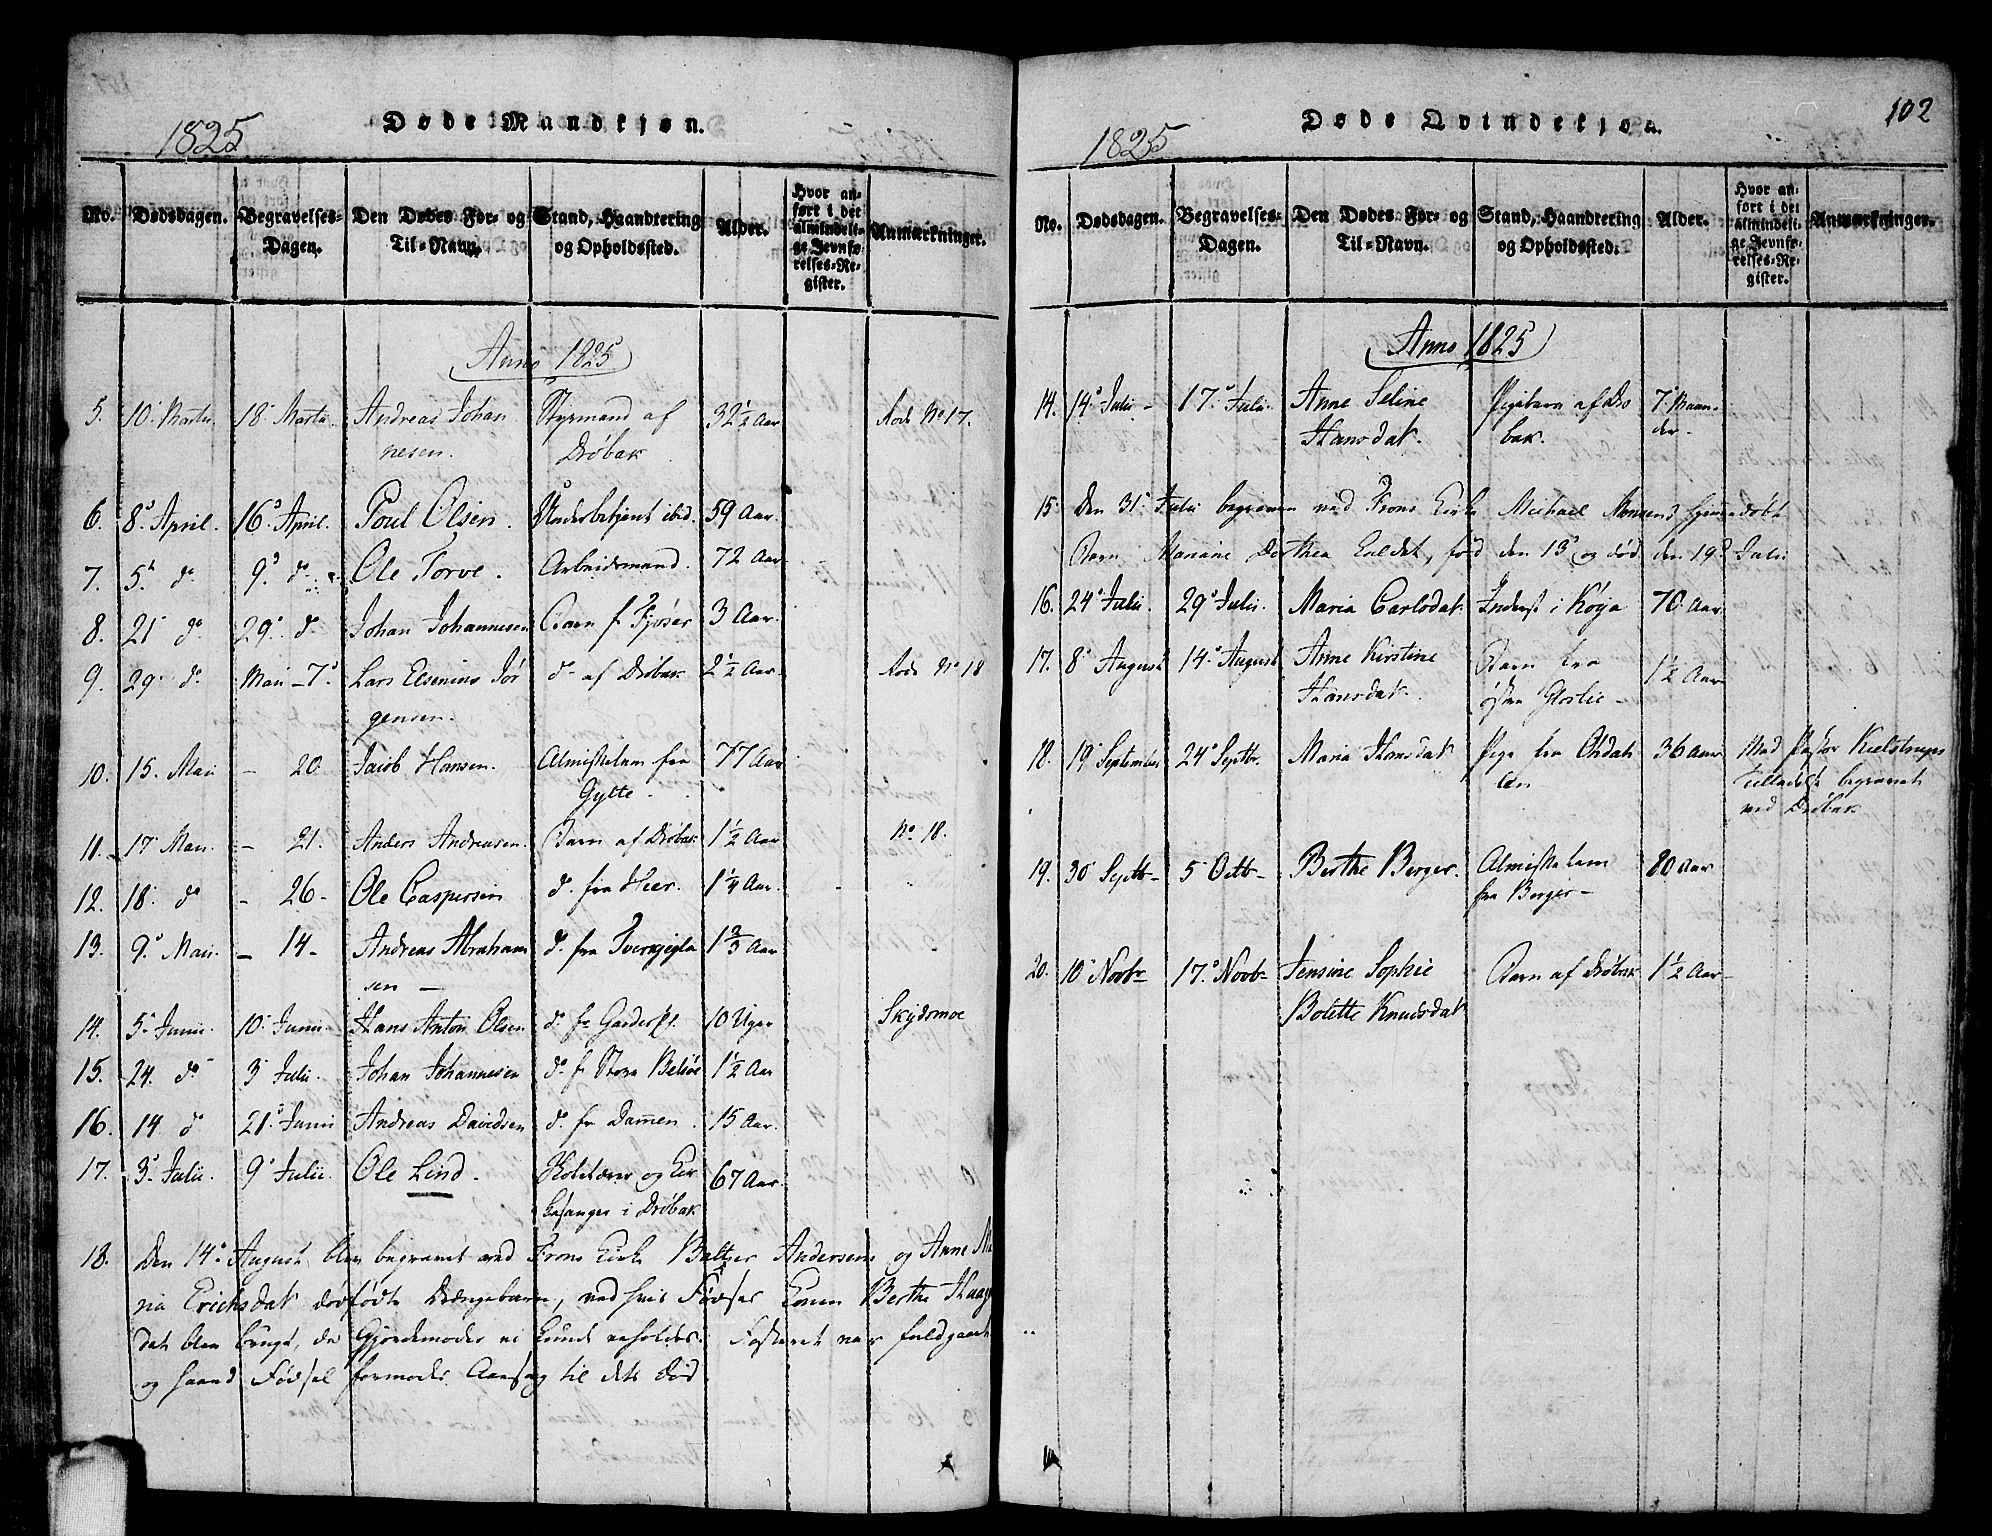 1825
Døde Mandkjøn.
No. Dødsdagen. Begravelses-Dagen. Den Dødes For- og Til-Navn. Stand, Haandtering og Opholdssted. Alder. Hvor anført i det almindelige Jevnførelses-Register. Anmærkninger.
Anno 1825
5. 10. Martii 18. Martii Andreas Johan Styrmand af 32 1/2 Aar No 17.
nesen. Drøbak
6. 8. April. 16. April. Poul Olsen. Underbetjent ibid. 59 Aar.
7. 5. do 9. do Ole Torve. Arbeidsmand. 72 Aar
8. 21 do 29. do Johan Johannesen Barn f Fjøser 3 Aar.
9. 29. do Mai - 7. Lars Jør do af Drøbak 2 1/2 Aar. No 18
gensen.
10. 15. Mai - 20. Jacob Hansen. Almisselem fra 77 Aar
Gylte.
11. 17 Mai - 21. Anders Andreasen. Barn af Drøbak 1 1/2 Aar No 18.
12. 18. do - 26- Ole Caspersen do fra Heer. 1 1/4 Aar.
13. 9. Mai - 14- Andreas Abraham do fra 1 2/3 Aar
sen -
14. 5. Junii. 10. Junii. Hans Anton Olsen do fr 10 Uger Skydsmoe
15. 24. do 3 Julii. Johan Johannesen do fr Store Belsøe 1 1/2 Aar
16. 14. do 21. Junii Andreas Davidsen do fr Dammen. 15 Aar.
17. 3. Julii. 9. Julii. Ole Lind. Skolelærer og Kir 67 Aar.
kesanger i Drøbak
18. Den 14. August blev begravet ved Frons Kirke Baltzer Andersens og Anne Ma
ria Erichsdat dødfødte Drengebarn, ved hvis Fødsel Konen Berthe
dat blev brugt, da Gjordemoder ei kunde Fosteret var fuldgaaet
og haard Fødsel formodes Aarsag til dets Død.
102
1825
Døde Qvindekjøn.
No. Dødsdagen. Begravelses-Dagen. Den Dødes For- og Til-Navn. Stand, Haandtering og Opholdssted. Alder. Hvor anført i det almindelige Jevnførelses-Register. Anmærkninger.
Anno 1825
14. 14. Julii - 17. Julii. Anne Seline Pigebarn af Drø 7 Maan-
Hansdat. bak. der.
15 Den 31. Julii begraven ved Frons Kirke Michael hjemmedøbt
Barn Mariane Dorthea kaldet, fød den 13. og død den 19. Julii
16. 24. Julii. 29. Julii. Maria Carlsdat. Inderst i Köya 70. Aar
17. 8. August 14. August Anne Kirstine Barn fra 1 1/2 Aar
Hansdat. østre Glostie -
18. 19. September 24. Septbr. Maria Hansdat Pige fra 36 Aar Med Pastor Kielstrups
Tilladelse begravet
ved Drøbak
19. 30 Septbr 5 Octbr - Berthe Berger. Almisselem 80 Aar
fra Berger -
20. 10. Novbr 17. Novbr Jensine Sophie Barn af Drøbak 1 1/2 Aar
Bolette Knudsdat